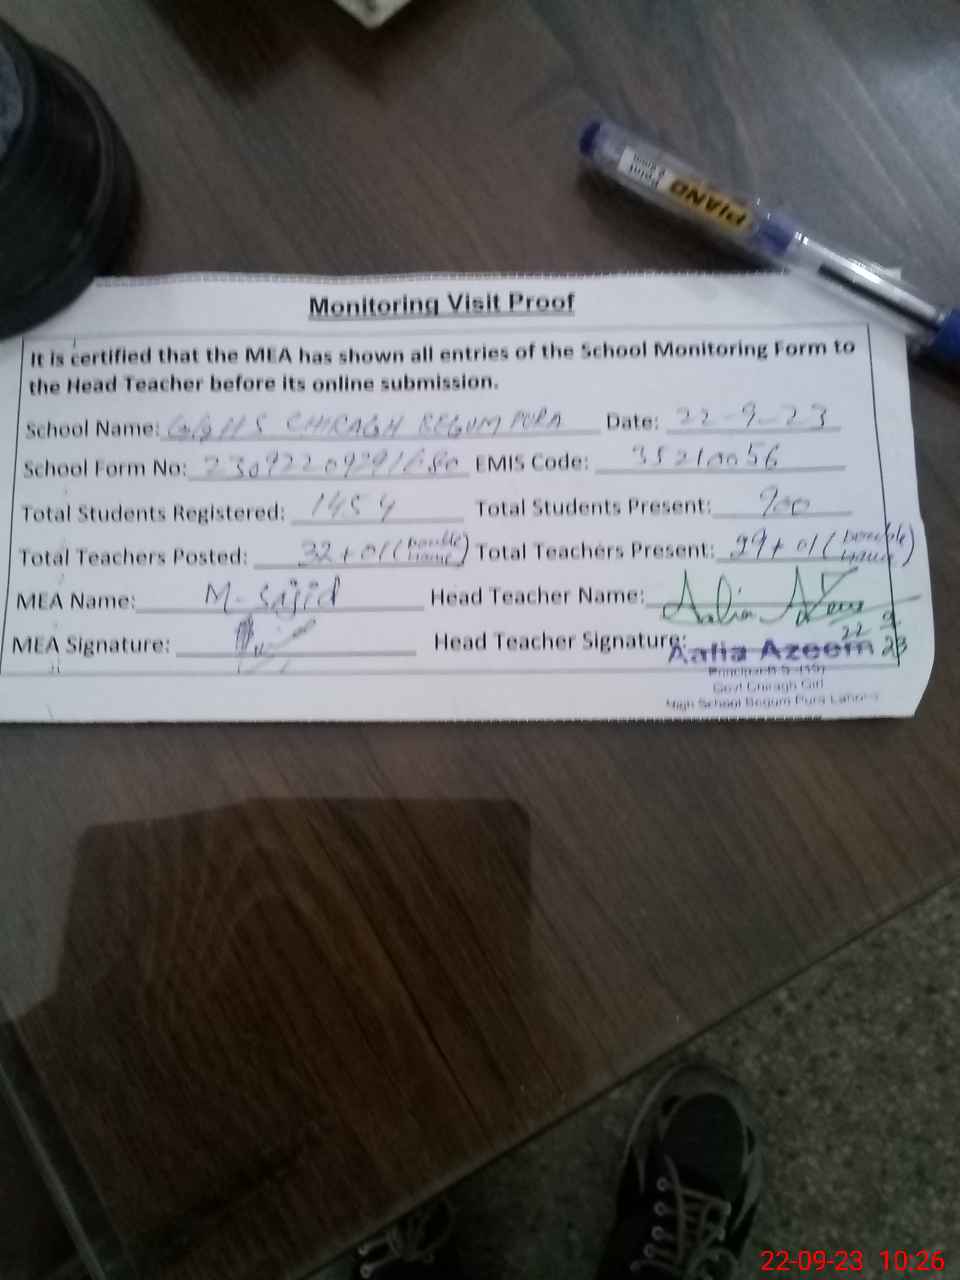 PIANO
Point
Monitoring Visit Proof
It is certified that the MEA has shown all entries of the School Monitoring Form to
the Head Teacher before its online submission.
School Name: GGHS CHIRAGH BEGUM PURA Date: 22-9-23
School Form No: EMIS Code: 35210056
Total Students Registered: 1454 Total Students Present: 900
Total Teachers Posted: 32+01( Total Teachers Present: 29+01(
MEA Name: M-Sajid Head Teacher Name: Aalia Azeem
MEA Signature: Head Teacher Signature: 22 9 23
Aalia Azeem
Principal B.S (19)
Govt Chiragh Girl
High School Begum Pura Lahore
22-09-23 10:26